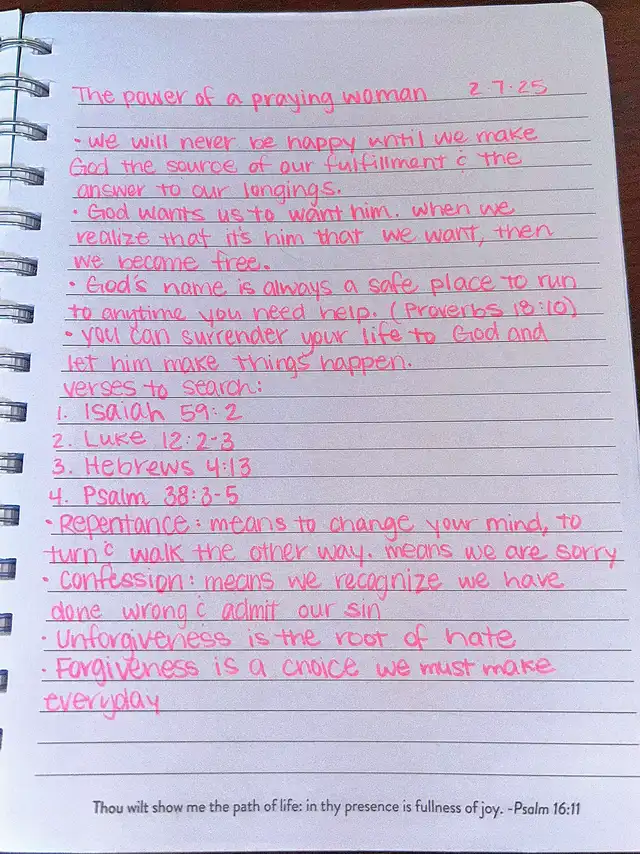 The power of a praying woman 2.7.25
• we will never be happy until we make
God the source of our fulfillment & the
answer to our longings.
• God wants us to want him. when we
realize that it's him that we want, then
we become free.
• God's name is always a safe place to run
to anytime you need help. (Proverbs 18:10)
• you can surrender your life to God and
let him make things happen.
verses to search:
1. Isaiah 59:2
2. Luke 12:2-3
3. Hebrews 4:13
4. Psalm 38:3-5
• Repentance: means to change your mind, to
turn & walk the other way. means we are sorry
• Confession: means we recognize we have
done wrong & admit our sin
• Unforgiveness is the root of hate
• Forgiveness is a choice we must make
everyday
Thou wilt show me the path of life: in thy presence is fullness of joy. -Psalm 16:11